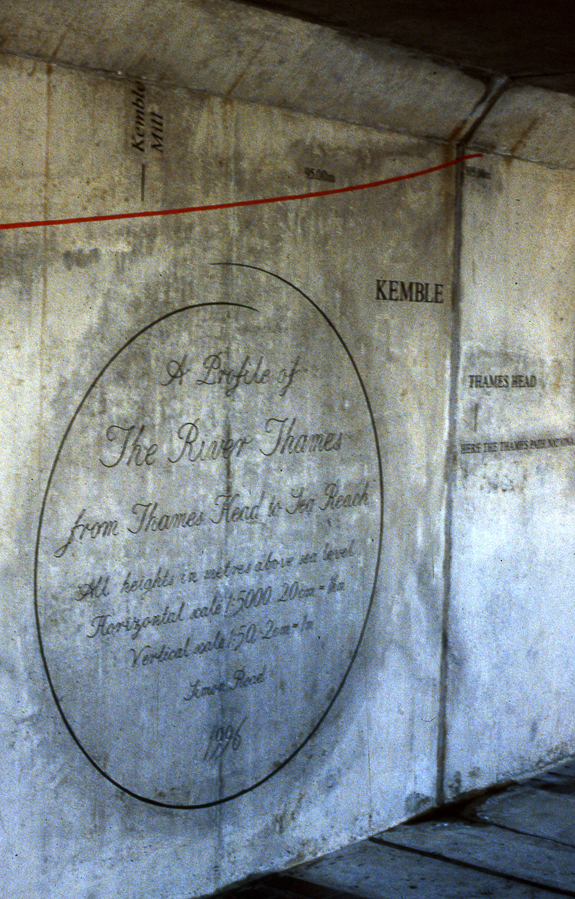 Kemble
Mill
95.00m
KEMBLE
THAMES HEAD
HERE THE THAMES PATH NATIONA
A Profile of
The River Thames
from Thames Head to Sea Reach
All heights in metres above sea level
Horizontal scale 1:5000 20cm = 1km
Vertical scale 1:50 2cm = 1m
Simon Read
1996